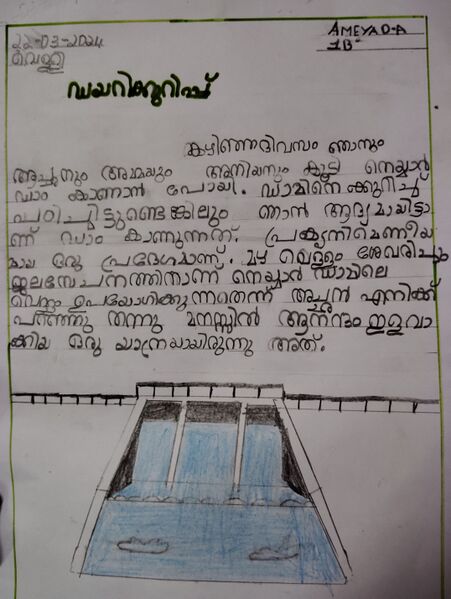 22-03-2024
വെള്ളി
AMEYA D-A
1B
ഡയറിക്കുറിപ്പ്
കഴിഞ്ഞദിവസം ഞാനും
അച്ഛനും അമ്മയും അനിയനും കൂടി നെയ്യാർ
ഡാം കാണാൻ പോയി. ഡാമിനെക്കുറിച്ച്
പഠിച്ചിട്ടുണ്ടെങ്കിലും ഞാൻ ആദ്യമായിട്ടാ
ണ് ഡാം കാണുന്നത്. പ്രകൃതിരമണീയ
മായ ഒരു പ്രദേശമാണ്. മഴ വെള്ളം ശേഖരിച്ചും
ജലസേചനത്തിതാണ് നെയ്യാർ ഡാമിലെ
വെള്ളം ഉപയോഗിക്കുന്നതെന്ന് അച്ഛൻ എനിക്ക്
പറഞ്ഞു തന്നു മനസ്സിൽ ആനന്ദം ഇളവാ
ക്കിയ ഒരു യാത്രയായിരുന്നു അത്.